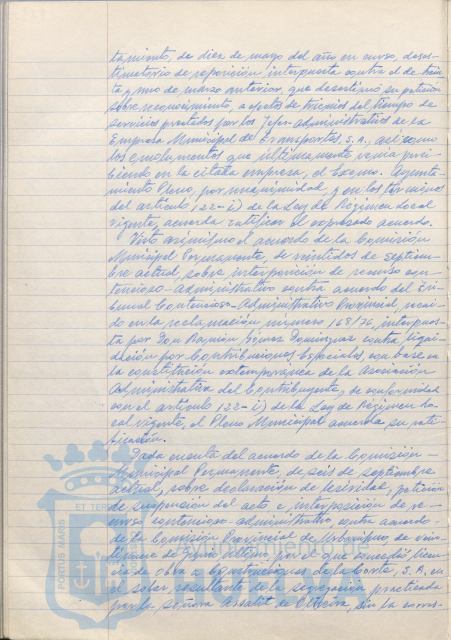 tamiento, de diez de mayo del año en curso, deses-
timatorio de reposición interpuesta contra el de trein
ta y uno de marzo anterior, que desestimó su petición
sobre reconocimiento, a efectos de trienios del tiempo de
servicios prestados por los Jefes administrativos de la
Empresa Municipal de Transportes, S.A., así como
los emolumentos que últimamente venía perci-
biendo en la citada empresa, el Excmo. Ayunta-
miento Pleno, por unanimidad, y en los términos
del artículo 122-i) de la Ley de Régimen Local
vigente, acuerda ratificar el expresado acuerdo.
Visto asimismo el acuerdo de la Comisión
Municipal Permanente, de veintidos de septiem-
bre actual sobre interposición de recurso con-
tencioso-administrativo contra acuerdo del Tri-
bunal Contencioso-Administrativo Provincial, recaí-
do en la reclamación número 168/76, interpues-
ta por Don Ramón Gómez Domínguez contra liqui-
dación por Contribuciones Especiales con base en
la constitución extemporánea de la Asociación
Administrativa del Contribuyente, de conformidad
con el artículo 122-i) de la Ley de Régimen Lo-
cal vigente, el Pleno Municipal acuerda su rati-
ficación.
Dada cuenta del acuerdo de la Comisión
Municipal Permanente, de seis de septiembre
actual, sobre declaración de lesividad, petición
de suspensión del acto e interposición de re-
curso contencioso-administrativo, contra acuerdo
de la Comisión Provincial de Urbanismo, de vein-
tinueve de Junio último, por el que concedió licen-
cia de obra a Construcciones de la Corte, S.A. en
el solar resultante de la segregación practicada
por la señora Assalit, de Oliveira, sin la corres-
PORTUS MARIS ET TERRAE
HUELVA